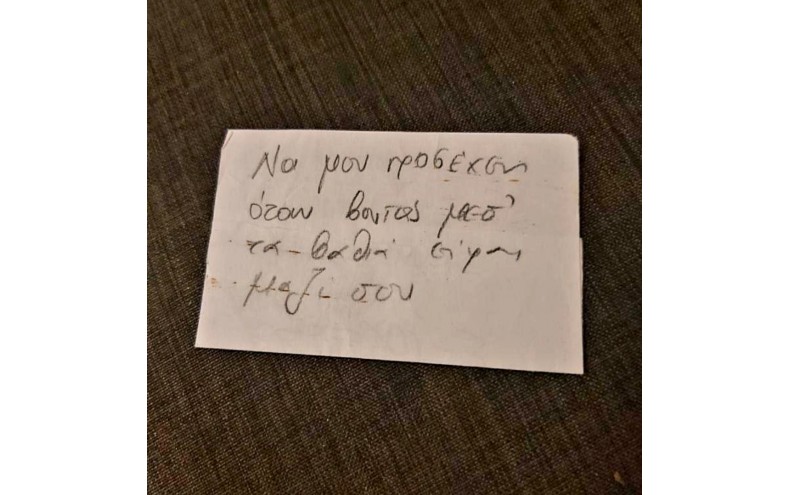 Να μου προσέχεις
όταν βουτάς μεσ'
τα βαθιά είμαι
μαζί σου